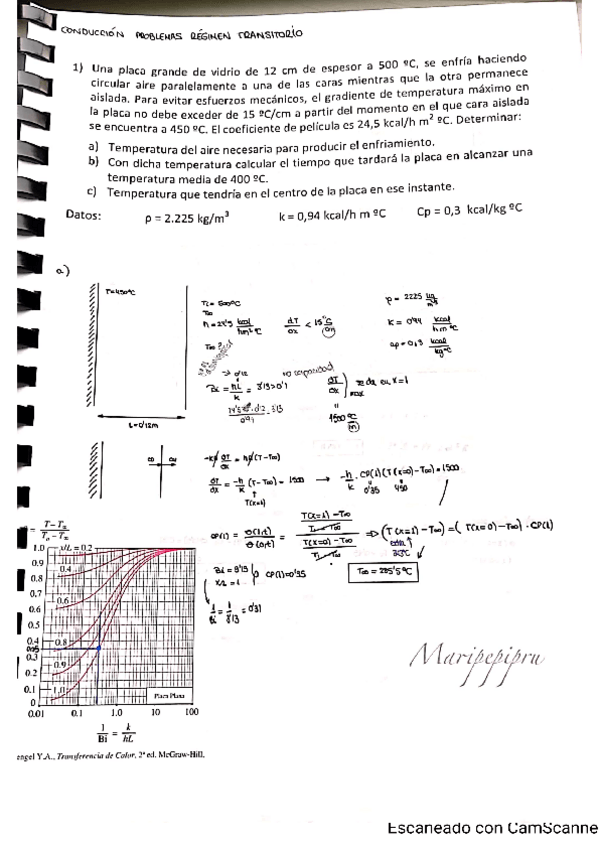 CONDUCCIÓN PROBLEMAS RÉGIMEN TRANSITORIO
1) Una placa grande de vidrio de 12 cm de espesor a 500 ºC, se enfría haciendo
circular aire paralelamente a una de las caras mientras que la otra permanece
aislada. Para evitar esfuerzos mecánicos, el gradiente de temperatura máximo en
la placa no debe exceder de 15 ºC/cm a partir del momento en el que cara aislada
se encuentra a 450 ºC. El coeficiente de película es 24,5 kcal/h m² ºC. Determinar:
a) Temperatura del aire necesaria para producir el enfriamiento.
b) Con dicha temperatura calcular el tiempo que tardará la placa en alcanzar una
temperatura media de 400 ºC.
c) Temperatura que tendría en el centro de la placa en ese instante.
Datos: ρ = 2.225 kg/m³ k = 0,94 kcal/h m ºC Cp = 0,3 kcal/kg ºC
a)
T=450ºC
Ti = 500ºC
T∞
dT/dx < 15 ºC/cm
ρ = 2225 kg/m³
k = 0'94 kcal/hmºC
cp = 0'3 kcal/kgºC
Bi = hL/k = 3'13 > 0'1
no capacidad
1500 ºC/m
L=0'12m
dT/dx = -h/k (T - T∞) = 1500 → -h/k · CP(1)(T(x=0) - T∞) = 1500
T(x=1) 0'35 450
CP(1) = θ(1,t)/θ(0,t) = ⇒ (T(x=1) - T∞) = (T(x=0) - T∞) · CP(1)
Bi = 3'13
x/L = 1
CP(1) = 0'35
T∞ = 285'5ºC
1/Bi = 1/3'13 = 0'31
x/L = 0.2
1.0
0.9
0.8
0.7
0.6
0.5
0.4
0.3
0.2
0.1
0
0.4
0.6
0.8
0.9
1.0
Placa Plana
0.01 0.1 1.0 10 100
1/Bi = k/hL
engel Y.A., Transferencia de Calor, 2ª ed. McGraw-Hill,
Maripepipru
Escaneado con CamScanne